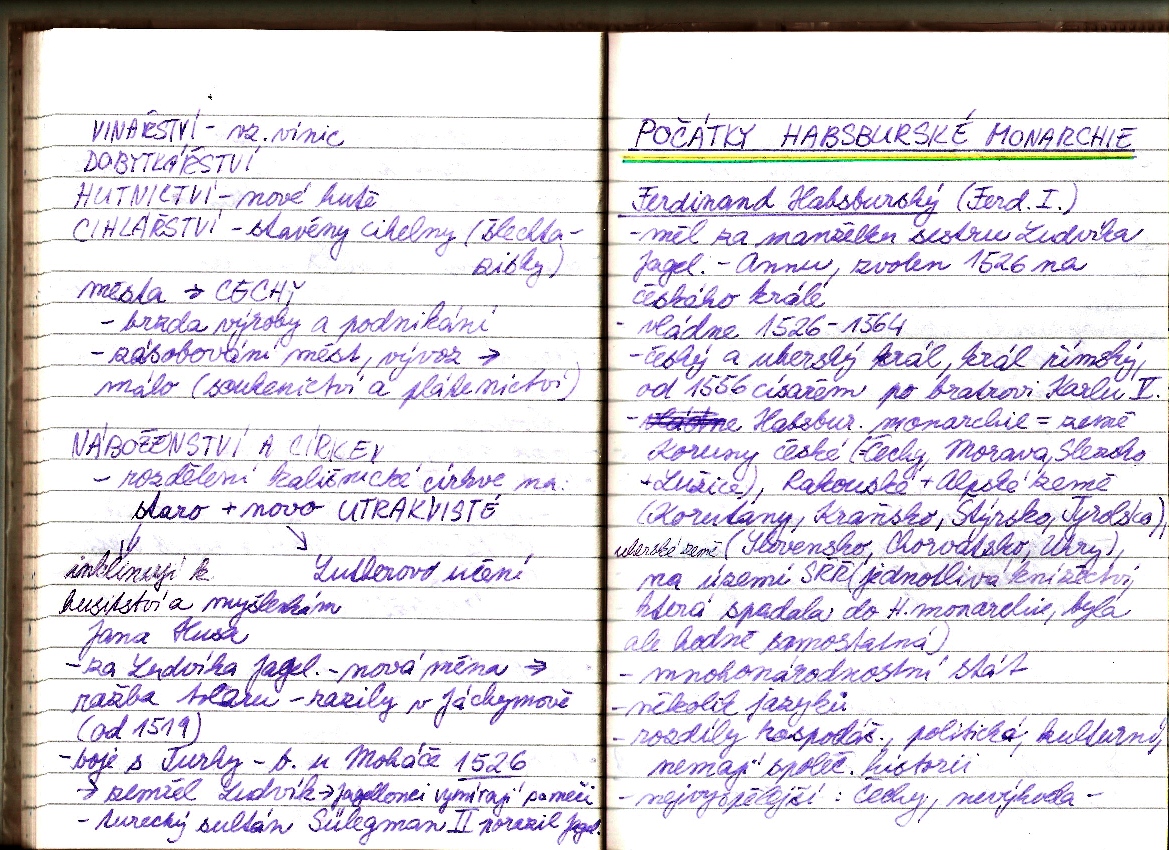 VINAŘSTVÍ - vz. vinic
DOBYTKÁŘSTVÍ
HUTNICTVÍ - nové hutě
CIHLÁŘSTVÍ - stavěny cihelny (šlechta -
zisky)
města → ČECHY
- brzda výroby a podnikání
- zásobování měst, vývoz →
málo (soukenictví a plátenictví)
NÁBOŽENSTVÍ A CÍRKEV
- rozdělení kališnické církve na:
staro + novo UTRAKVISTÉ
inklinují k
husitství a myšlenkám
Jana Husa
Lutherovo učení
- za Ludvíka Jagel. - nová měna →
ražba tolaru - razily v Jáchymově
(od 1519)
- boje s Turky - b. u Moháče 1526
→ zemřel Ludvík → Jagellonci vymírají po meči
- turecký sultán Sülegman II porazil Jagel.
POČÁTKY HABSBURSKÉ MONARCHIE
Ferdinand Habsburský (Ferd. I.)
- měl za manželku sestru Ludvíka
Jagel. - Annu, zvolen 1526 na
českého krále
- vládne 1526 - 1564
- český a uherský král, král římský,
od 1556 císařem po bratrovi Karlu V.
- Habsbur. monarchie = země
Koruny české (=Čechy, Morava, Slezsko
+ Lužice), Rakouské + Alpské země
(Korutany, Kraňsko, Štýrsko, Tyrolsko),
uherské země (Slovensko, Chorvatsko, Uhry),
na území SŘŘ (jednotlivá knížectví,
která spadala do H. monarchie, byla
ale hodně samostatná)
- mnohonárodnostní stát
- několik jazyků
- rozdíly hospodář., politická, kulturní,
nemají společ. historii
- nejvyspělejší : Čechy, nevýhoda -